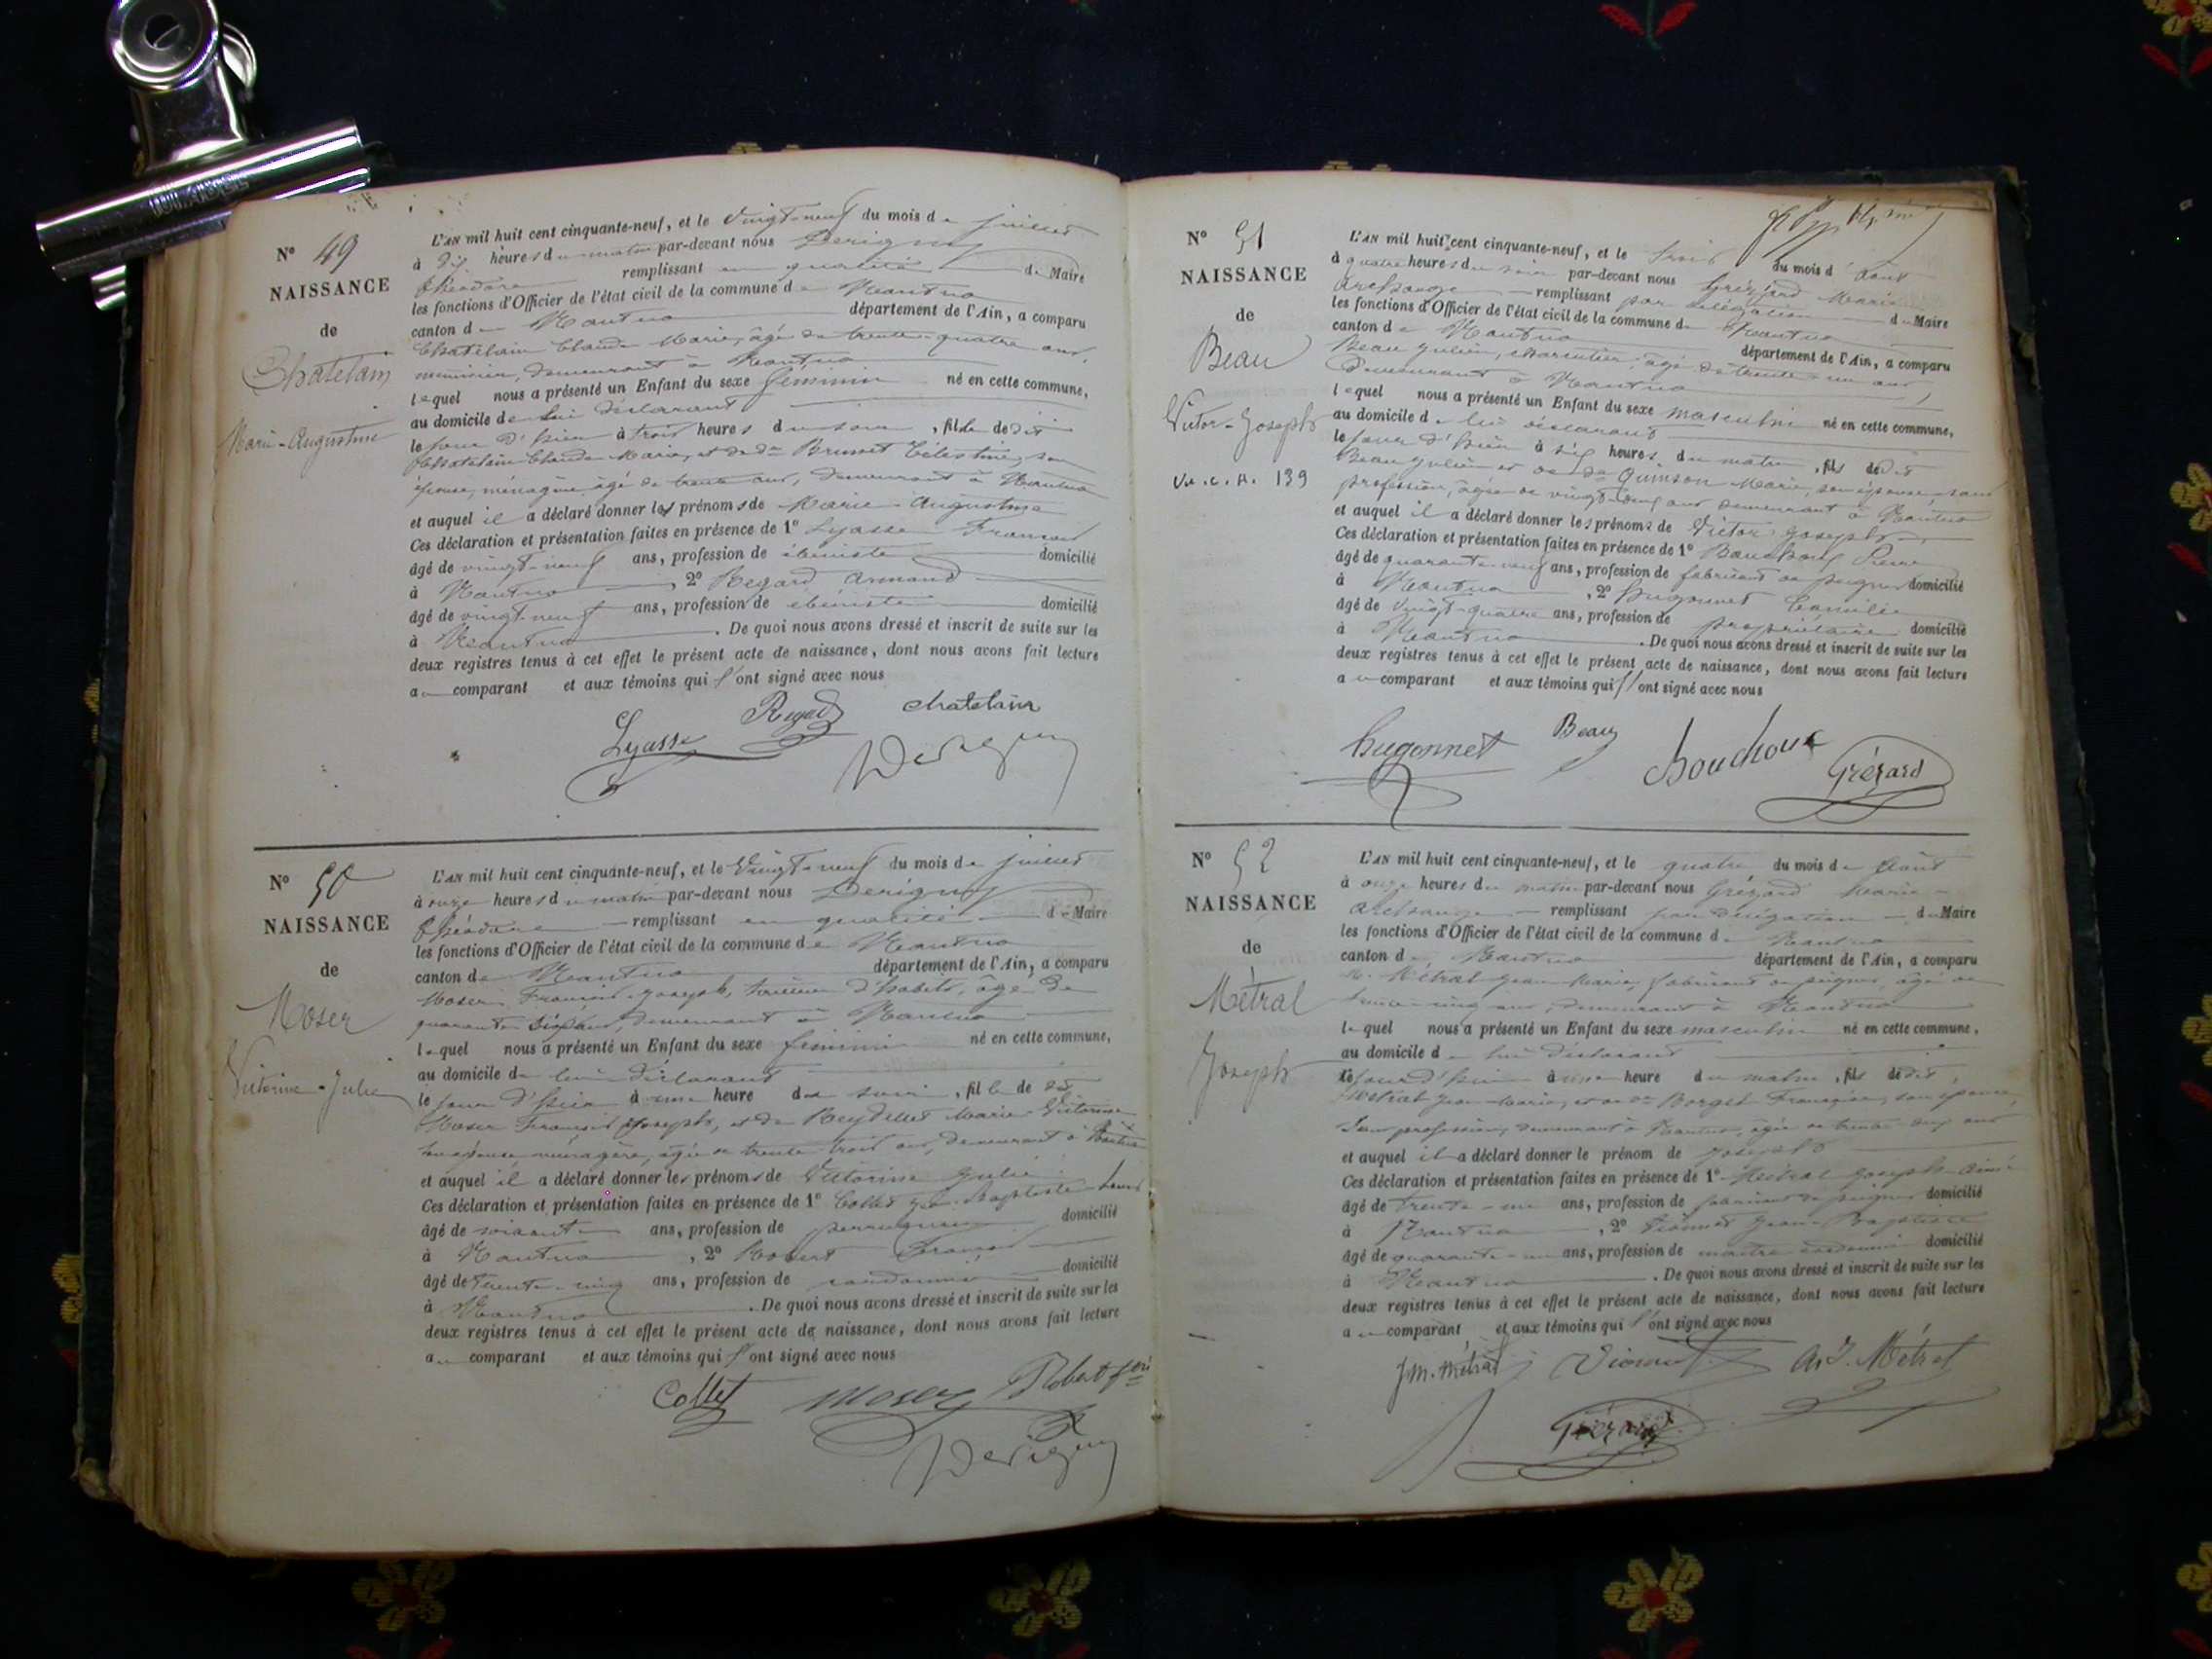 N° 49
NAISSANCE
de
Chatelain
Marie-Augustine
L'AN mil huit cent cinquante-neuf, et le vingt-neuf du mois de juillet
à dix heures du matin par-devant nous Derigny
Théodore remplissant en qualité de Maire
les fonctions d'Officier de l'état civil de la commune de Nantua
canton de Nantua département de l'Ain, a comparu
Chatelain Claude Marie, âgé de trente-quatre ans,
menuisier, demeurant à Nantua
lequel nous a présenté un Enfant du sexe féminin né en cette commune,
au domicile de lui déclarant
le jour d'hier à trois heures du soir, fille de dit
Chatelain Claude Marie, et de de Brunet Célestine, son
épouse, ménagère, âgé de trente ans, demeurant à Nantua
et auquel il a déclaré donner les prénoms de Marie-Augustine
Ces déclaration et présentation faites en présence de 1° Lyasse François
âgé de vingt-neuf ans, profession de ébéniste domicilié
à Nantua, 2° Regard Armand
âgé de vingt-neuf ans, profession de ébéniste domicilié
à Nantua. De quoi nous avons dressé et inscrit de suite sur les
deux registres tenus à cet effet le présent acte de naissance, dont nous avons fait lecture
au comparant et aux témoins qui l'ont signé avec nous
Lyasse Regard chatelain
Derigny
N° 50
NAISSANCE
de
Moser
Victorine-Julie
L'AN mil huit cent cinquante-neuf, et le Vingt-neuf du mois de juillet
à onze heures du matin par-devant nous Derigny
Théodore remplissant en qualité de Maire
les fonctions d'Officier de l'état civil de la commune de Nantua
canton de Nantua département de l'Ain, a comparu
Moser François Joseph, tailleur d'habits, âgé de
quarante ans, demeurant à Nantua
lequel nous a présenté un Enfant du sexe féminin né en cette commune,
au domicile de lui déclarant
le jour d'hier à une heure du soir, fille de dit
Moser François Joseph, et de Reydellet Marie-Victorine
son épouse ménagère, âgée de trente trois ans, demeurant à Nantua
et auquel il a déclaré donner les prénoms de Victorine Julie
Ces déclaration et présentation faites en présence de 1° Collet Jean-Baptiste-Louis
âgé de soixante ans, profession de perruquier domicilié
à Nantua, 2° Robert François
âgé de trente-cinq ans, profession de cordonnier domicilié
à Nantua. De quoi nous avons dressé et inscrit de suite sur les
deux registres tenus à cet effet le présent acte de naissance, dont nous avons fait lecture
au comparant et aux témoins qui l'ont signé avec nous
Collet moser Robert fçois
Derigny
N° 51
NAISSANCE
de
Beau
Victor-Joseph
V.e.c.A. 139
L'AN mil huit cent cinquante-neuf, et le trois du mois d'août
à quatre heures du soir par-devant nous Grézard Marie
Archange remplissant par délégation du Maire
les fonctions d'Officier de l'état civil de la commune de Nantua
canton de Nantua département de l'Ain, a comparu
Beau Julien, charcutier, âgé de trente-un ans,
Demeurant à Nantua
lequel nous a présenté un Enfant du sexe masculin né en cette commune,
au domicile de lui déclarant
le jour d'hier à six heures du matin, fils de dit
Beau Julien et de de Quinson Marie, son épouse, sans
profession, âgée de vingt ans demeurant à Nantua
et auquel il a déclaré donner les prénoms de Victor Joseph
Ces déclaration et présentation faites en présence de 1° Bouchoux Pierre
âgé de quarante-neuf ans, profession de fabricant de peignes domicilié
à Nantua, 2° Hugonnet Camille
âgé de vingt-quatre ans, profession de propriétaire domicilié
à Nantua. De quoi nous avons dressé et inscrit de suite sur les
deux registres tenus à cet effet le présent acte de naissance, dont nous avons fait lecture
au comparant et aux témoins qui l'ont signé avec nous
hugonnet Beau bouchoux Grézard
N° 52
NAISSANCE
de
Métral
Joseph
L'AN mil huit cent cinquante-neuf, et le quatre du mois de Août
à onze heures du matin par-devant nous Grézard Marie-
Archange remplissant par délégation du Maire
les fonctions d'Officier de l'état civil de la commune de Nantua
canton de Nantua département de l'Ain, a comparu
Métral Jean-Marie, fabricant de peignes, âgé de
trente-cinq ans, demeurant à Nantua
lequel nous a présenté un Enfant du sexe masculin né en cette commune,
au domicile de lui déclarant
le jour d'hier à une heure du matin, fils de dit
Métral Jean-Marie, et de de Borget Françoise, son épouse,
sans profession, demeurant à Nantua, âgée de trente deux ans
et auquel il a déclaré donner le prénom de Joseph
Ces déclaration et présentation faites en présence de 1° Métral Joseph-Aimé
âgé de trente-un ans, profession de fabricant de peignes domicilié
à Nantua, 2° Jean-Baptiste
âgé de quarante-un ans, profession de maître cordonnier domicilié
à Nantua. De quoi nous avons dressé et inscrit de suite sur les
deux registres tenus à cet effet le présent acte de naissance, dont nous avons fait lecture
au comparant et aux témoins qui l'ont signé avec nous
J.m. métral Métral
Grézard